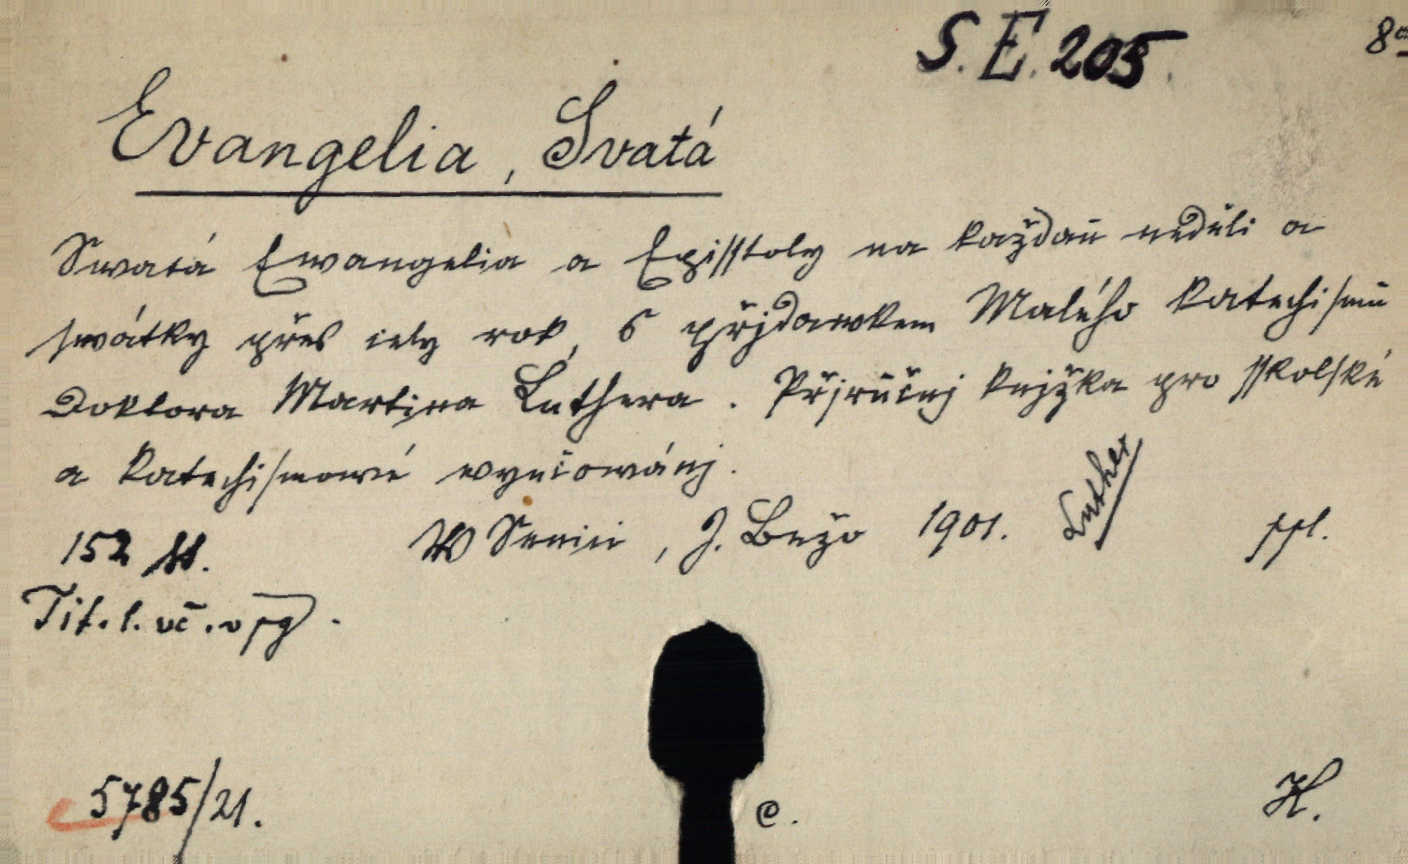 S. E. 205. 8°
Evangelia, Svatá
Swatá Ewangelia a Episstoly na každau neděli a
swátky přes celý rok, s přjdawkem Malého katechismu
Doktora Martina Luthera. Přjručnj knjžka pro sskolské
a katechismowé wyučowánj.
152 ss. W Senici, J. Bežo 1901. Luther ppl.
Tit. l. vč. v pg.
5785/21. C. H.